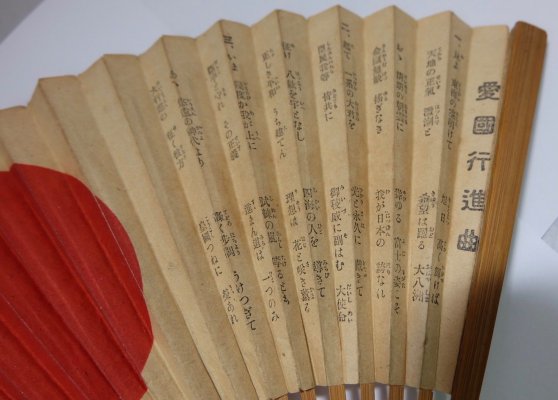 愛國行進曲
一、見よ 東海の空明けて 旭日 高く輝けば
天地の正氣 溌剌と 希望は躍る 大八洲
おゝ 晴朗の朝雲に 聳ゆる 富士の姿こそ
金甌無缺 搖ぎなき 我が日本の 誇なれ
二、起て 一系の大君を 光と永久に 戴きて
臣民我等 皆共に 御稜威に副はむ 大使命
往け 八紘を宇となし 四海の人を 導きて
正しき平和 うち建てん 理想は 花と咲き薫る
三、いま 幾度か我が上に 試煉の嵐 哮るとも
斷乎と守れ その正義 進まん道は 一つのみ
あゝ 悠遠の神代より 轟く歩調 うけつぎて
大行進の 行く彼方 皇國つねに 榮あれ